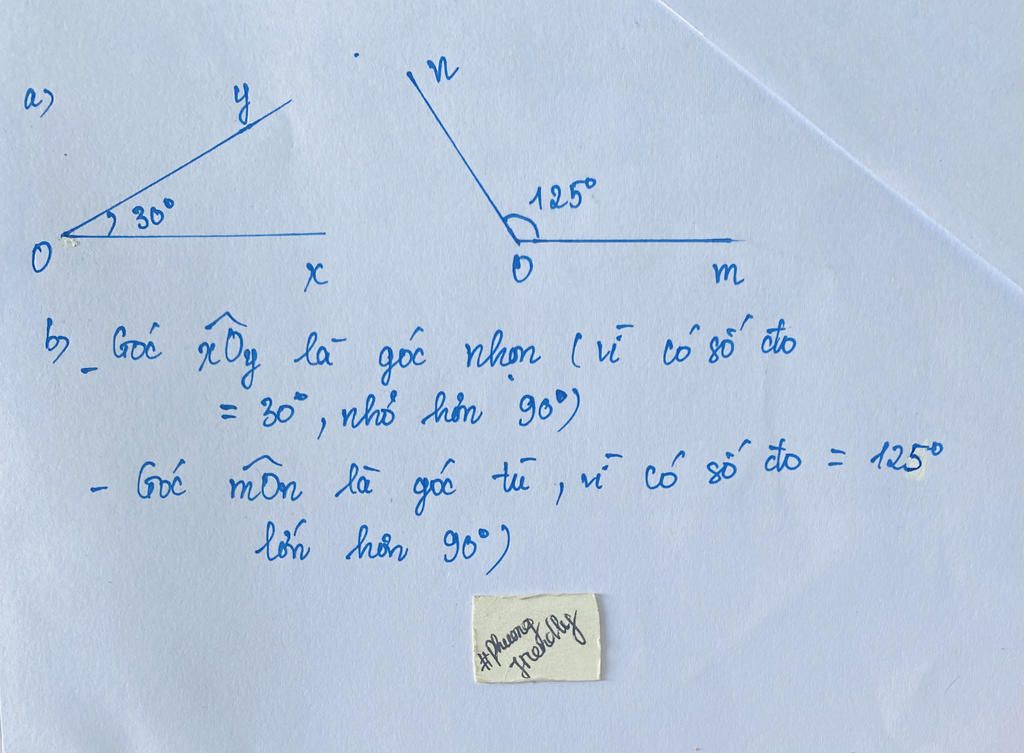 a)
y
30°
O
x
n
125°
O
m
b) - Góc xÔy là góc nhọn (vì có số đo
= 30°, nhỏ hơn 90°)
- Góc mÔn là góc tù, vì có số đo = 125°
lớn hơn 90°)
#Phuong
friendly